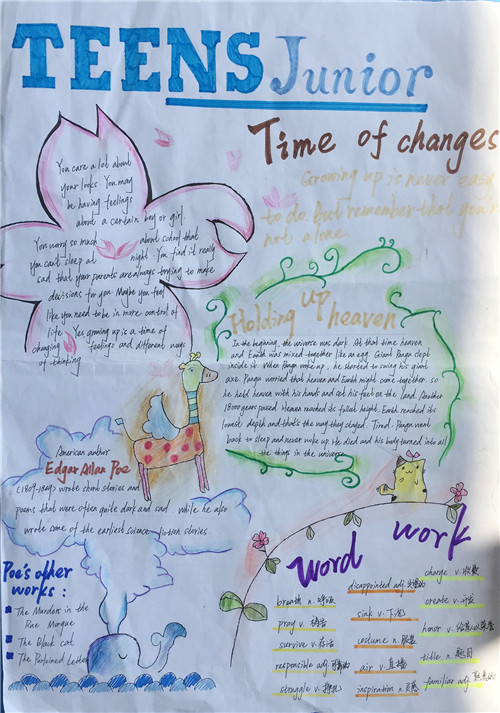 TEENS Junior
Time of changes
Growing up is never easy
to do. But remember that you'r
not alone
You care a lot about
your looks. You may
be having feelings
about a certain boy or girl.
You worry so much about school that
you can't sleep at night. You find it really
sad that your parents are always trying to make
decisions for you. Maybe you feel
like you need to be in more control of
life. Yes growing up is a time of
changing feelings and different ways
of thinking
Holding up
heaven
In the beginning, the universe was dark. At that time heaven
and Earth was mixed together like an egg. Giant Pangu slept
inside it. When Pangu woke up, he started to swing his giant
axe. Pangu worried that heaven and Earth might come together. so
he held heaven with his hands and set his feet on the land. Another
18000 years passed. Heaven reached its fullest height. Earth reached its
lowest depth and that's the way they stayed. Tired. Pangu went
back to sleep and never woke up. He died and his body turned into all
the things in the universe
American author
Edgar Allan Poe
(1809-1849) wrote short stories and
poems that were often quite dark and sad while he also
wrote some of the earliest science-fiction stories
Poe's other
works:
The Murders in the
Rue Morgue
The Black cat
The Purloined Letter
word work
breath n. 呼吸
pray v. 祷告
survive v. 存活
responsible adj.
struggle v. 挣扎
disappointed adj.
sink v. 下沉
costume n. 服装
air v. 直播
inspiration n. 灵感
charge v. 收费
create v.
honor v.
title n. 题目
familiar adj.